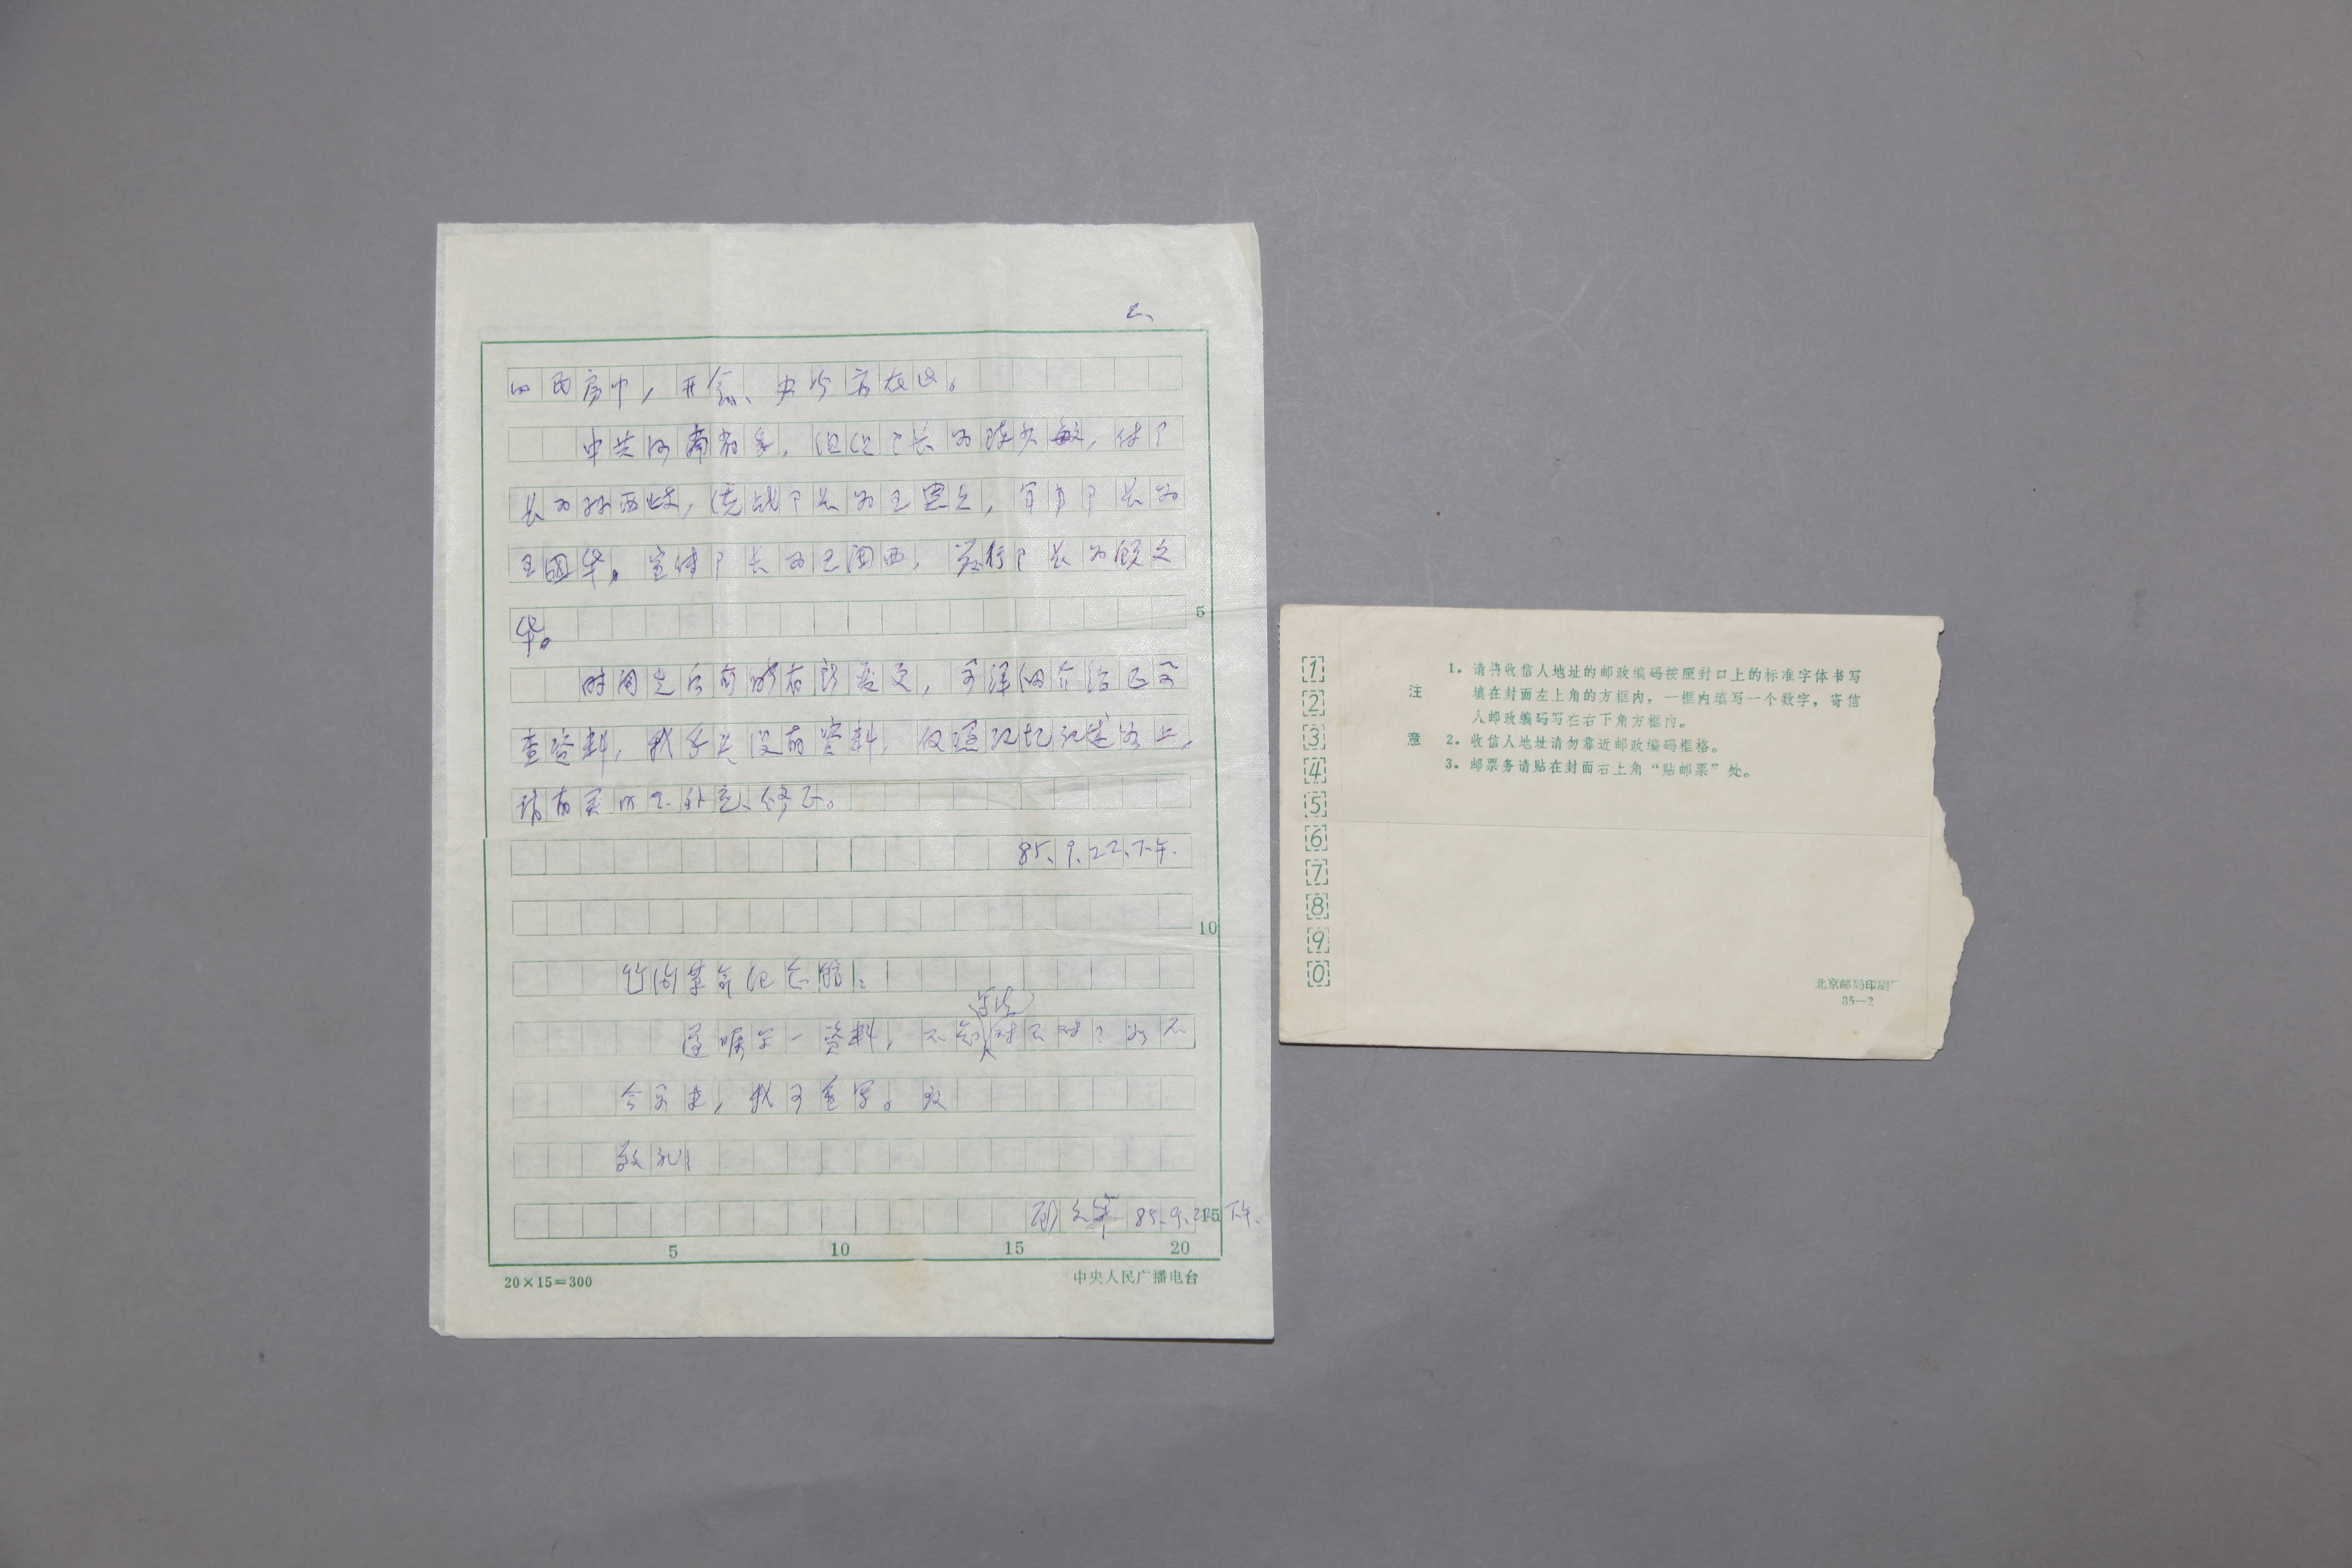 2、
的民房中，开会、办公都在此。
中共河南省委，组织部长为陈少敏，
长为孙西岐，统战部长为王恩久，军事部长为
王国华，宣传部长为王阑西，发行部长为顾文
华。
时间先后有所变更，可详细介绍
查资料，我手头没有资料，仅凭记忆记述如上，
请有关同志补充、修正。
85.9.22.下午.
竹沟革命纪念馆：
遵嘱写一资料，不知写法对不对？如不
合要求，我可重写。致
敬礼！
顾文华 85.9.22下午.
5
10
15
5 10 15 20
20×15=300 中央人民广播电台
1
2
3
4
5
6
7
8
9
0
注意
1．请将收信人地址的邮政编码按照封口上的标准字体书写
填在封面左上角的方框内，一框内填写一个数字，寄信
人邮政编码写在右下角方框内。
2．收信人地址请勿靠近邮政编码框格。
3．邮票务请贴在封面右上角“贴邮票”处。
北京邮局印刷厂
85—2